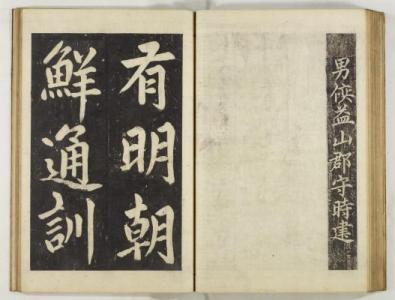 男益山郡守時建
有明朝
鮮通訓